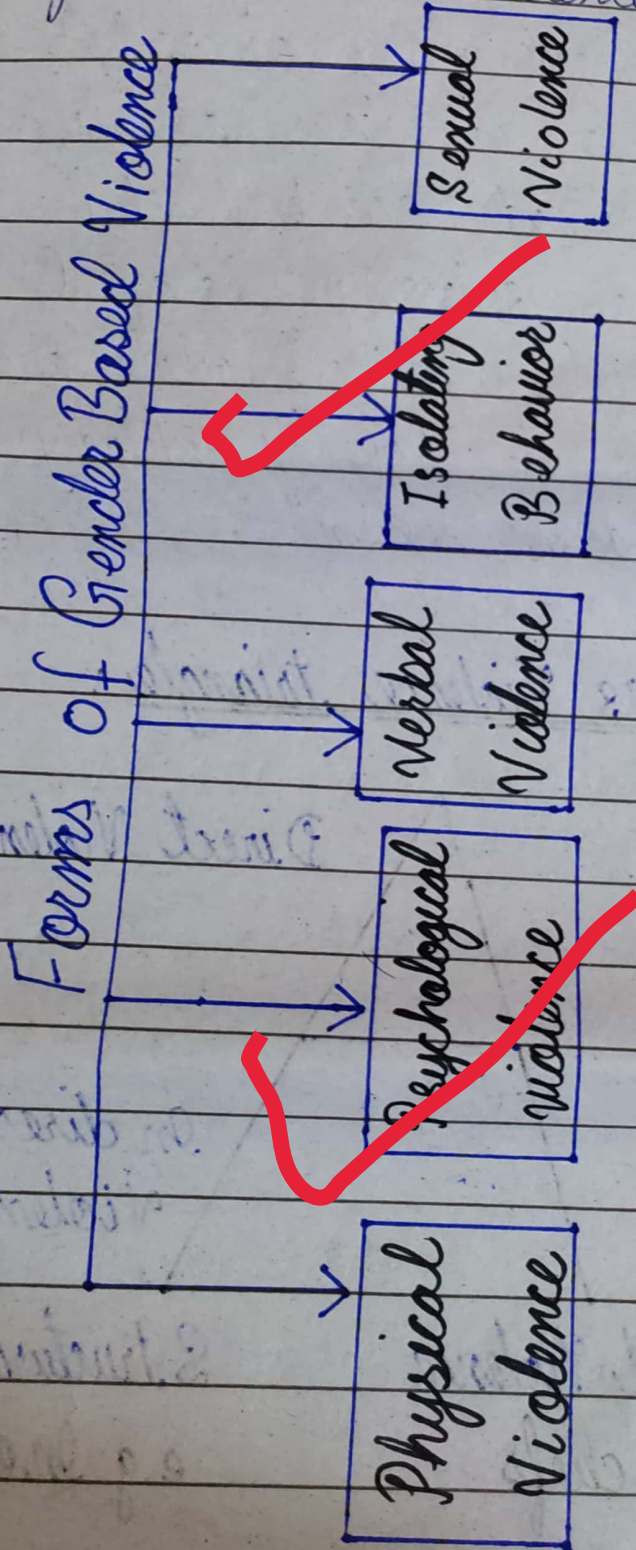 Forms of Gender Based Violence
Physical
Violence
Psychological
Violence
Verbal
Violence
Isolating
Behavior
Sexual
Violence
Direct Violen